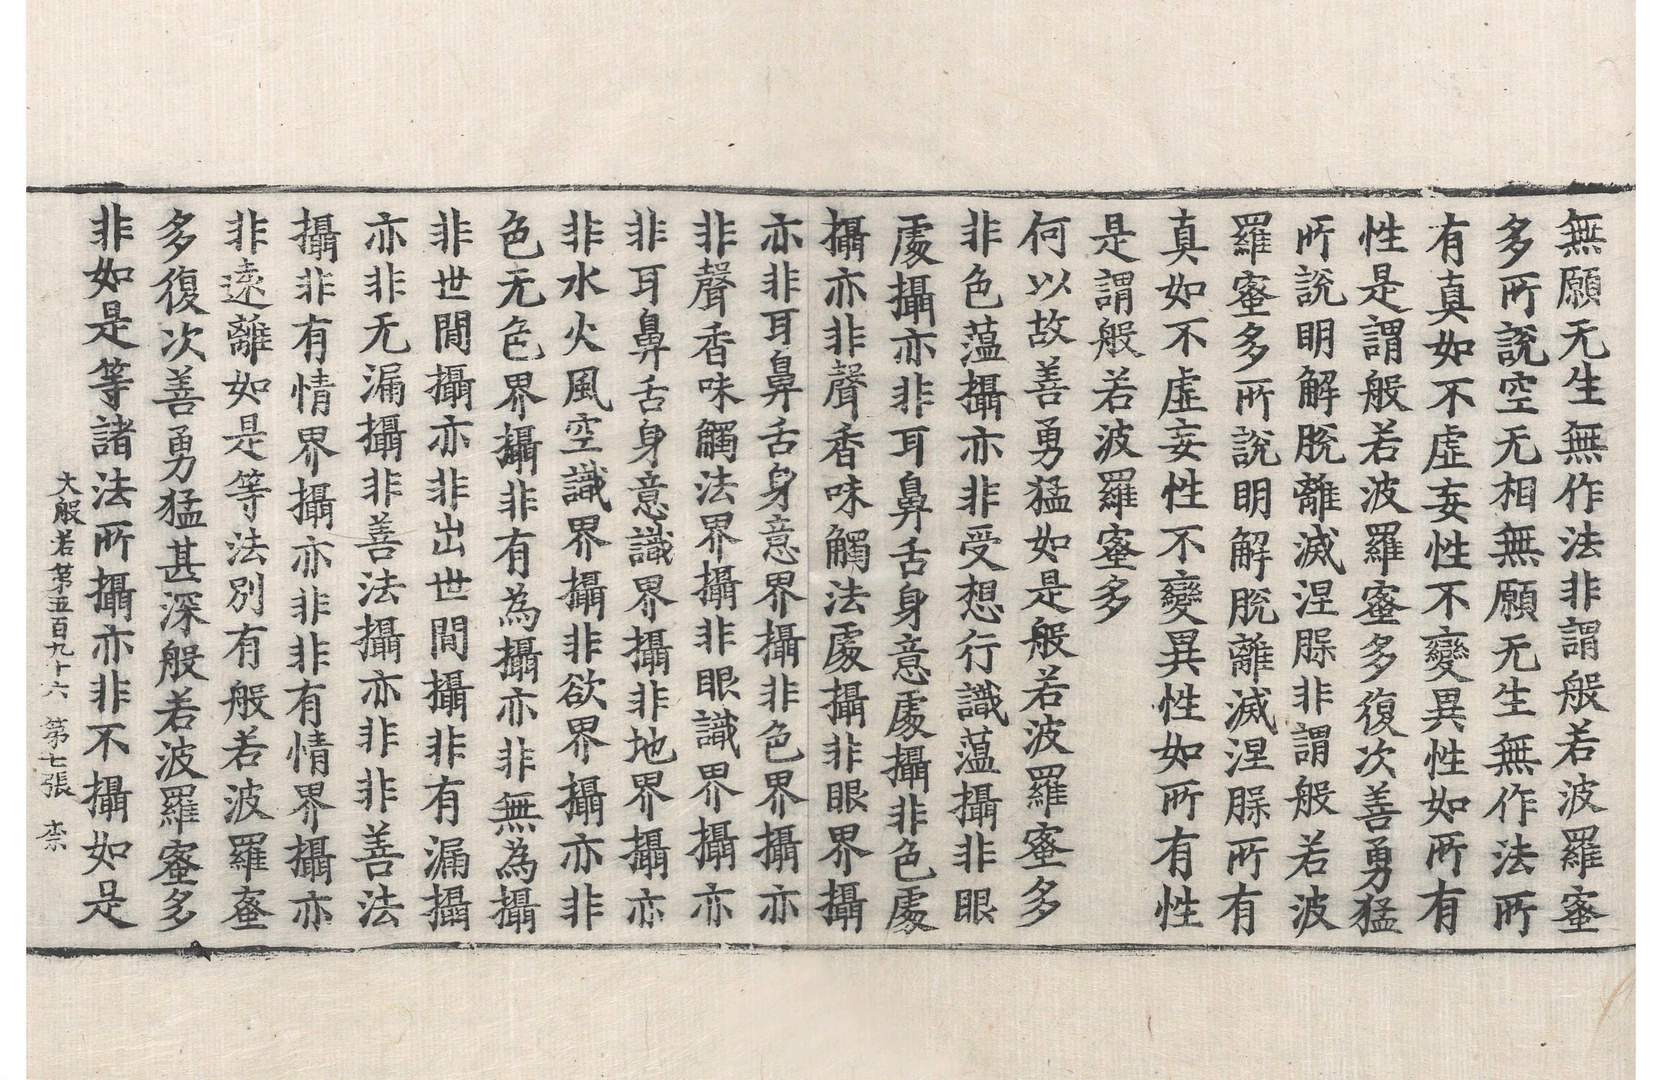 無願无生無作法非謂般若波羅蜜
多所說空无相無願无生無作法所
有真如不虛妄性不變異性如所有
性是謂般若波羅蜜多復次善勇猛
所說明解脫離滅涅槃非謂般若波
羅蜜多所說明解脫離滅涅槃所有
真如不虛妄性不變異性如所有性
是謂般若波羅蜜多
何以故善勇猛如是般若波羅蜜多
非色蕰攝亦非受想行識蕰攝非眼
處攝亦非耳鼻舌身意處攝非色處
攝亦非聲香味觸法處攝非眼界攝
亦非耳鼻舌身意界攝非色界攝亦
非聲香味觸法界攝非眼識界攝亦
非耳鼻舌身意識界攝非地界攝亦
非水火風空識界攝非欲界攝亦非
色无色界攝非有為攝亦非無為攝
非世間攝亦非出世間攝非有漏攝
亦非无漏攝非善法攝亦非非善法
攝非有情界攝亦非非有情界攝亦
非遠離如是等法別有般若波羅蜜
多復次善勇猛甚深般若波羅蜜多
非如是等諸法所攝亦非不攝如是
大般若第五百九十六 第七張 柰